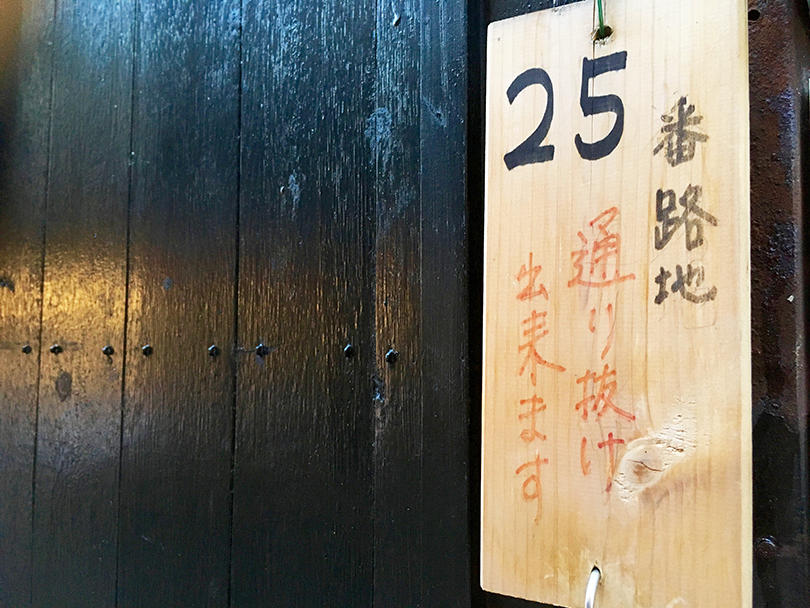 25
番路地
通り抜け
出来ます